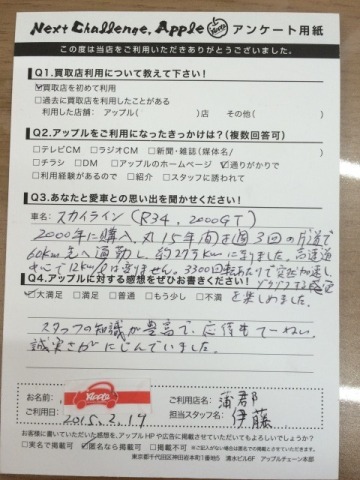 Next Challenge. Apple アンケート用紙
この度は当店をご利用いただきありがとうございました。
Q1.買取店利用について教えて下さい!
☑買取店を初めて利用
□過去に買取店を利用したことがある
利用した店舗: アップル( )店 その他( )
Q2.アップルをご利用になったきっかけは?(複数回答可)
□テレビCM □ラジオCM □新聞・雑誌(媒体名/ )
□チラシ □DM □アップルのホームページ ☑通りがかりで
□利用経験があるので □紹介 □スタッフに誘われて
Q3.あなたと愛車との思い出を聞かせください!
車名: スカイライン (R34. 2000GT)
2000年に購入. 丸15年間 週3回の片道で
60km先へ通勤し、約27万kmになりました。高速道
中心で12km/ 3300回転あたりで
Q4.アップルに対する感想をぜひお書きください!
を楽しめました。
☑大満足 □満足 □普通 □もう少し □不満
スタッフの知識が豊富で、応待もてーねい
誠実さがにじんでいました。
お名前: Apple
ご利用日: 2015.2.19
ご利用店名: 蒲郡
担当スタッフ名: 伊藤
お客様に書いていただいた感想を、アップルHPや広告に掲載させていただいてもよろしいでしょうか?
□実名で掲載可 ☑匿名なら掲載可 □不可
※ご記入がない場合は匿名で掲載させていただく場合がございます。
東京都千代田区神田岩本町1番地5 清水ビル6F アップルチェーン本部